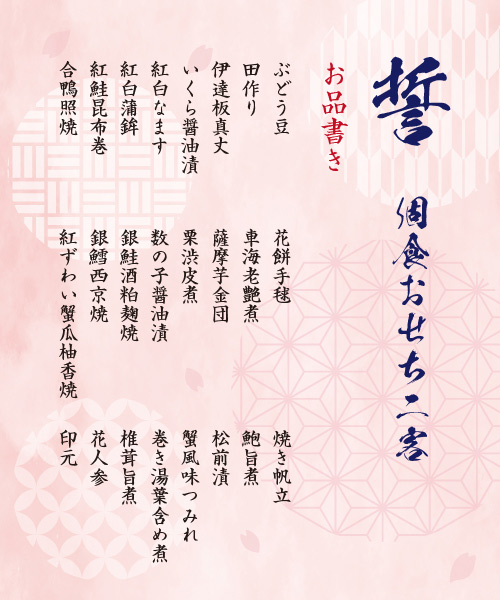 誓
個食おせち二客
お品書き
ぶどう豆
田作り
伊達板真丈
いくら醤油漬
紅白なます
紅白蒲鉾
紅鮭昆布巻
合鴨照焼
花餅手毬
車海老艶煮
薩摩芋金団
栗渋皮煮
数の子醤油漬
銀鮭酒粕麹焼
銀鱈西京焼
紅ずわい蟹瓜柚香焼
焼き帆立
鮑旨煮
松前漬
蟹風味つみれ
巻き湯葉含め煮
椎茸旨煮
花人参
印元